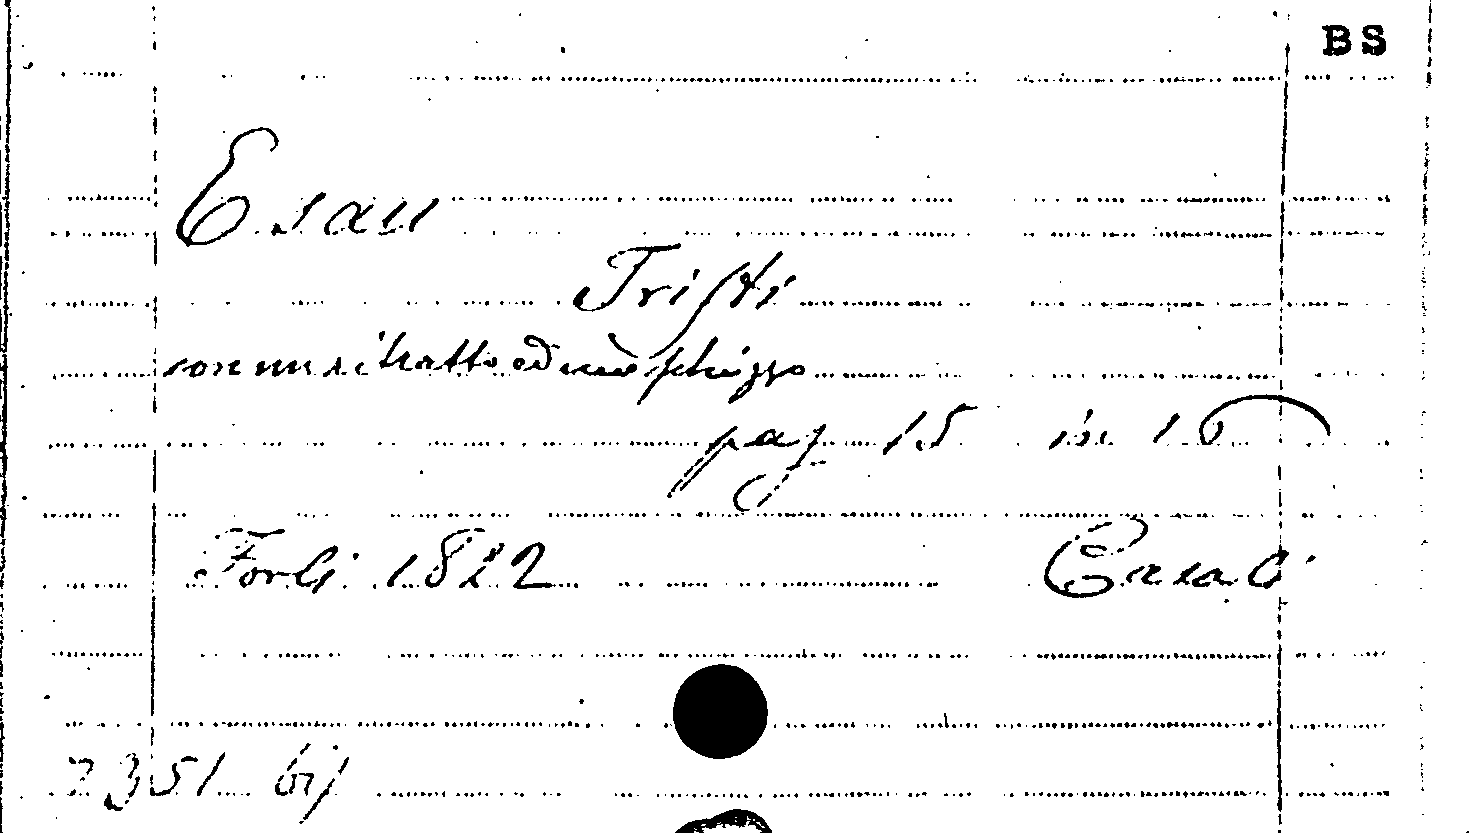 BS
Esau
Tristi
con un ritratto ed uno schizzo
pag 15 in 16
Forlì 1822
Casali
2351 bis